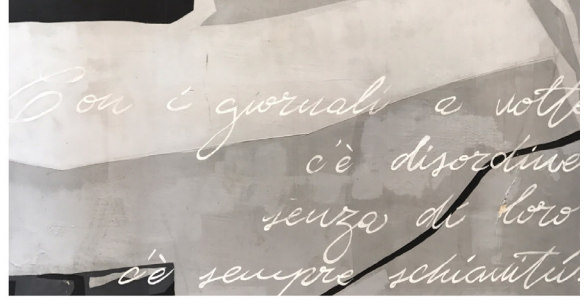 Con i giornali a volte
c'è disordine
senza di loro
c'è sempre schiavitù